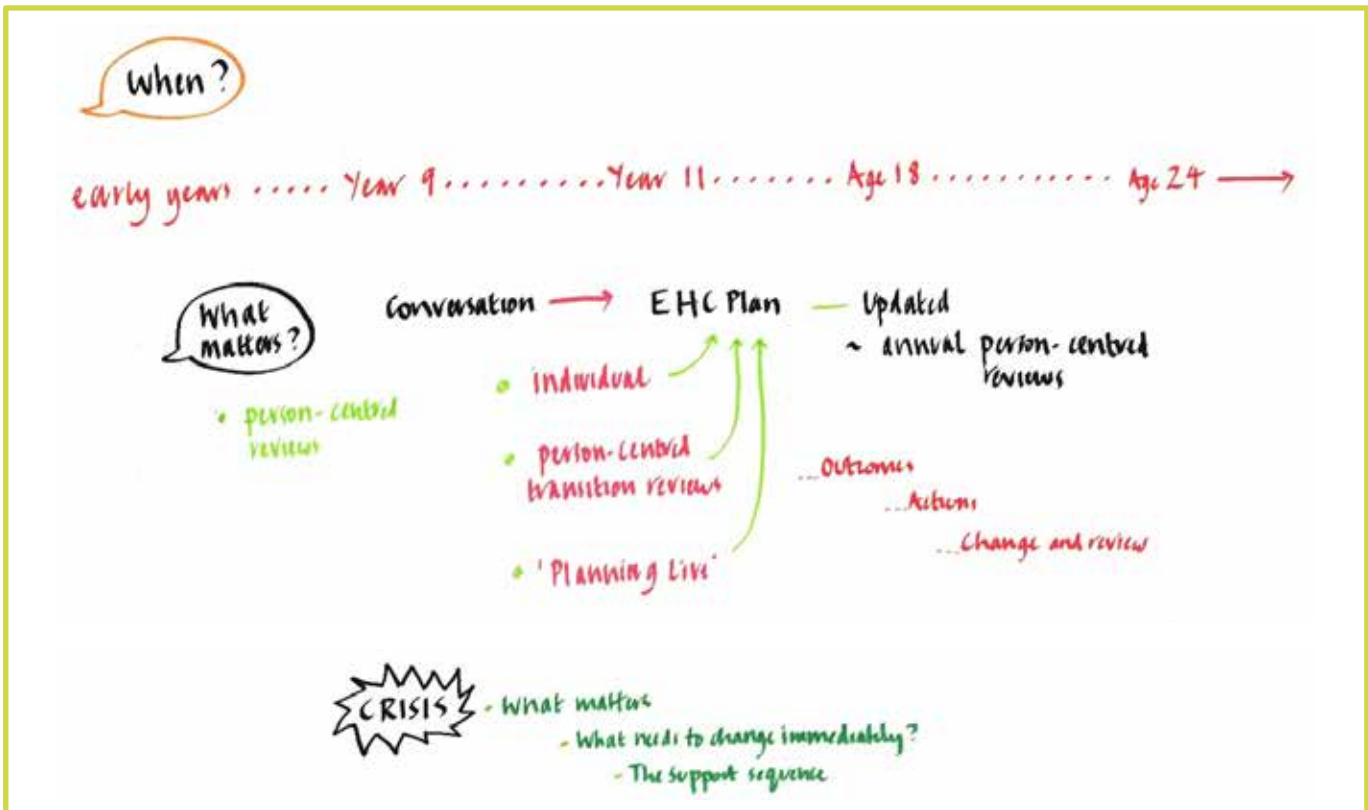 When?
early years ..... Year 9 .......... Year 11 ....... Age 18 ........... Age 24
What
matters?
• person-centred
reviews
Conversation → EHC Plan — Updated
~ annual person-centred
reviews
• individual
• person-centred
transition reviews
• 'Planning Live'
...Outcomes
...Actions
...Change and review
CRISIS - What matters
- What needs to change immediately?
- The support sequence